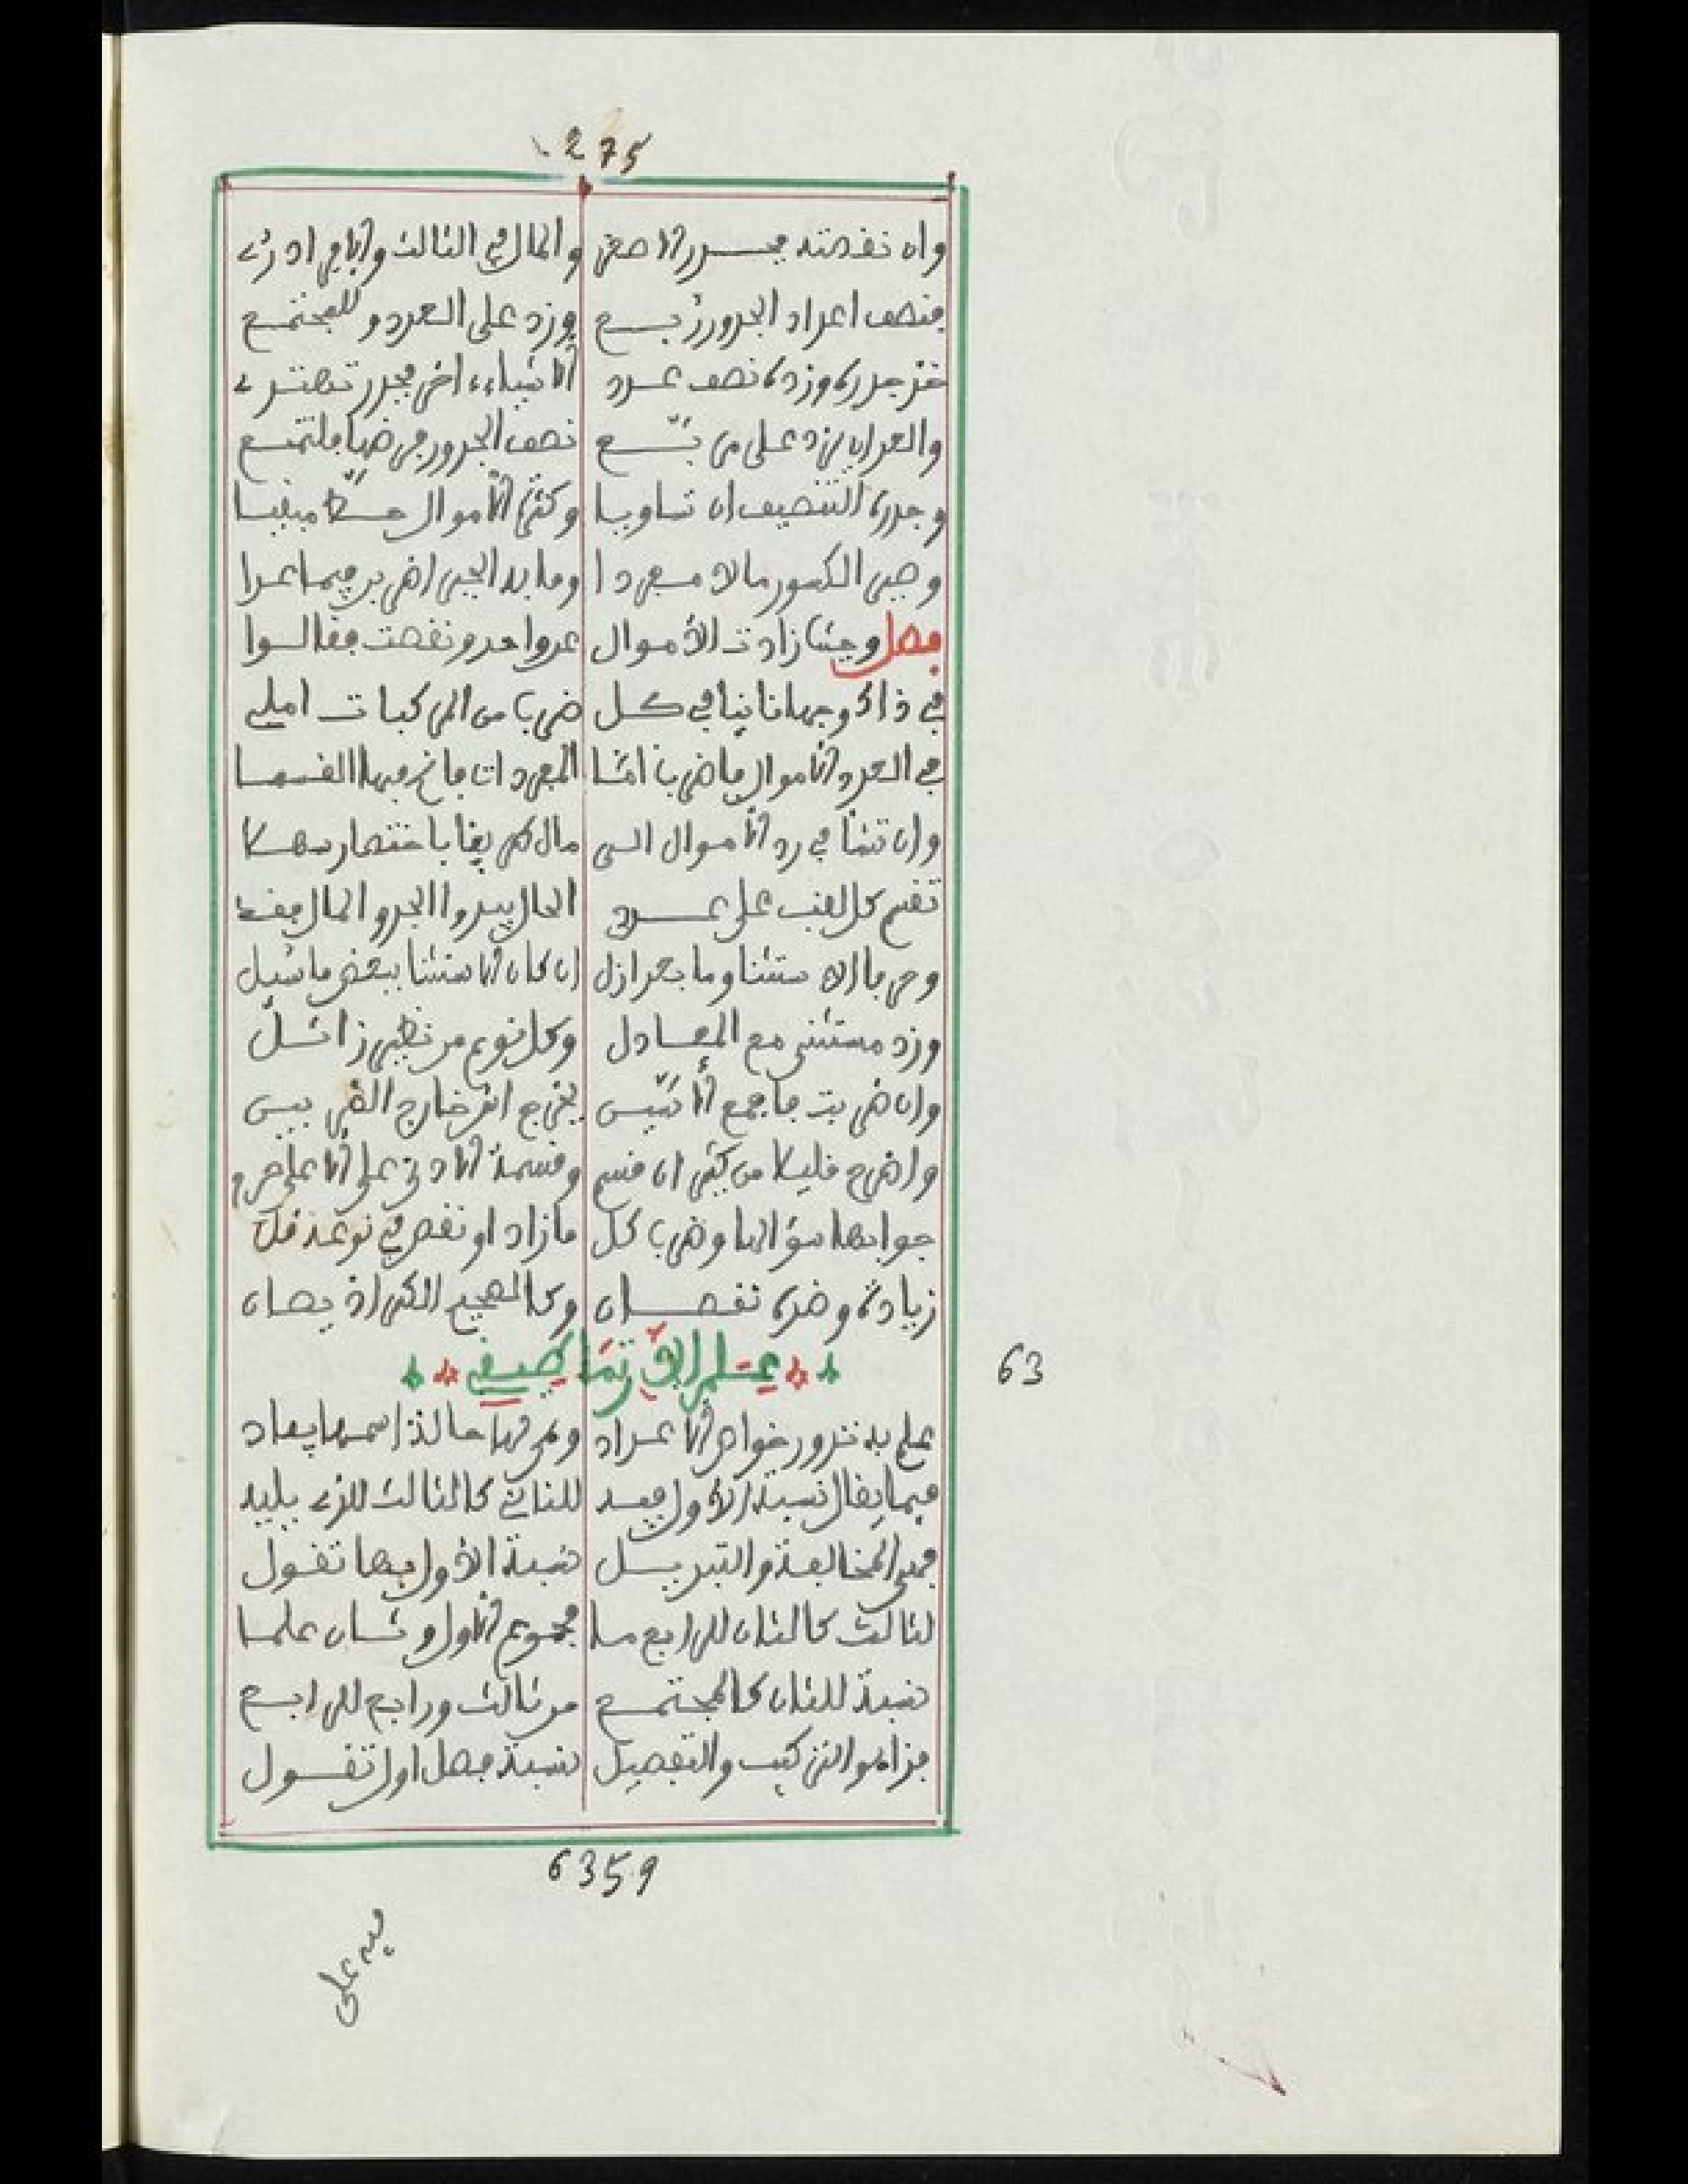 275
وان نقصته بجذر الأصغر والمال في الثالث والباقي ادري
فنصف اعداد الجذور ربع وزد على العدد وللمجتمع
خذ جذره وزده نصف عدد الأشياء اخر بجذر تهتدي
والعد ان يزد على من تربيع نصف الجذور من ضربها فلتمنع
وجذره التنصيف ان تساويا وكثرة الأموال حطا
وصير الكسور مالا مفردا وما به الجبر اضرب فيما عدا
فصل وحيثما زادت الأموال عن واحد ونقصت فقالوا
في ذاك وجها ثانيا في كل ضربا من المركبات املي
في العدد الأموال فاضربا اثنا المفردات فابغ فيها القسما
وان تشأ في رد الأموال الى مال
تقسم كل لقب على عدد المال يبدوا الجذر والمال فقد
وحرف الا ستثنا وما بعد ازل ان كان الاستثنا ببعض ما سئل
وزد مستثنى مع المعادل وكل نوع من نظير زائل
وان ضربت فاجمع الأسيس يخرج اس خارج الضرب بيس
واطرح قليلا من كثير ان قسم وقسمة الأدنى على الأعلى حرم
جوابها سؤالها وضرب كل مازاد او نقص في نوعه قل
زيادة وضده نقصان وكالصحيح الكسر اذ يصان
علم الارتماطيقي
63
علم به تدرر خواص الأعداد ومر فيها حالة اسمها يعاد
فيما يقال نسبة الأول فيه للثاني كالثالث للذي يليه
فمن المخالفة والتبديل نسبة الأول فيها تقول
لثالث كالثان للرابع ما مجموع الأول وثان علما
نسبة للثان كالمجتمع من ثالث ورابع للرابع
هذا هو التركيب والتفصيل نسبة فصل اول تقول
6359
فيه على